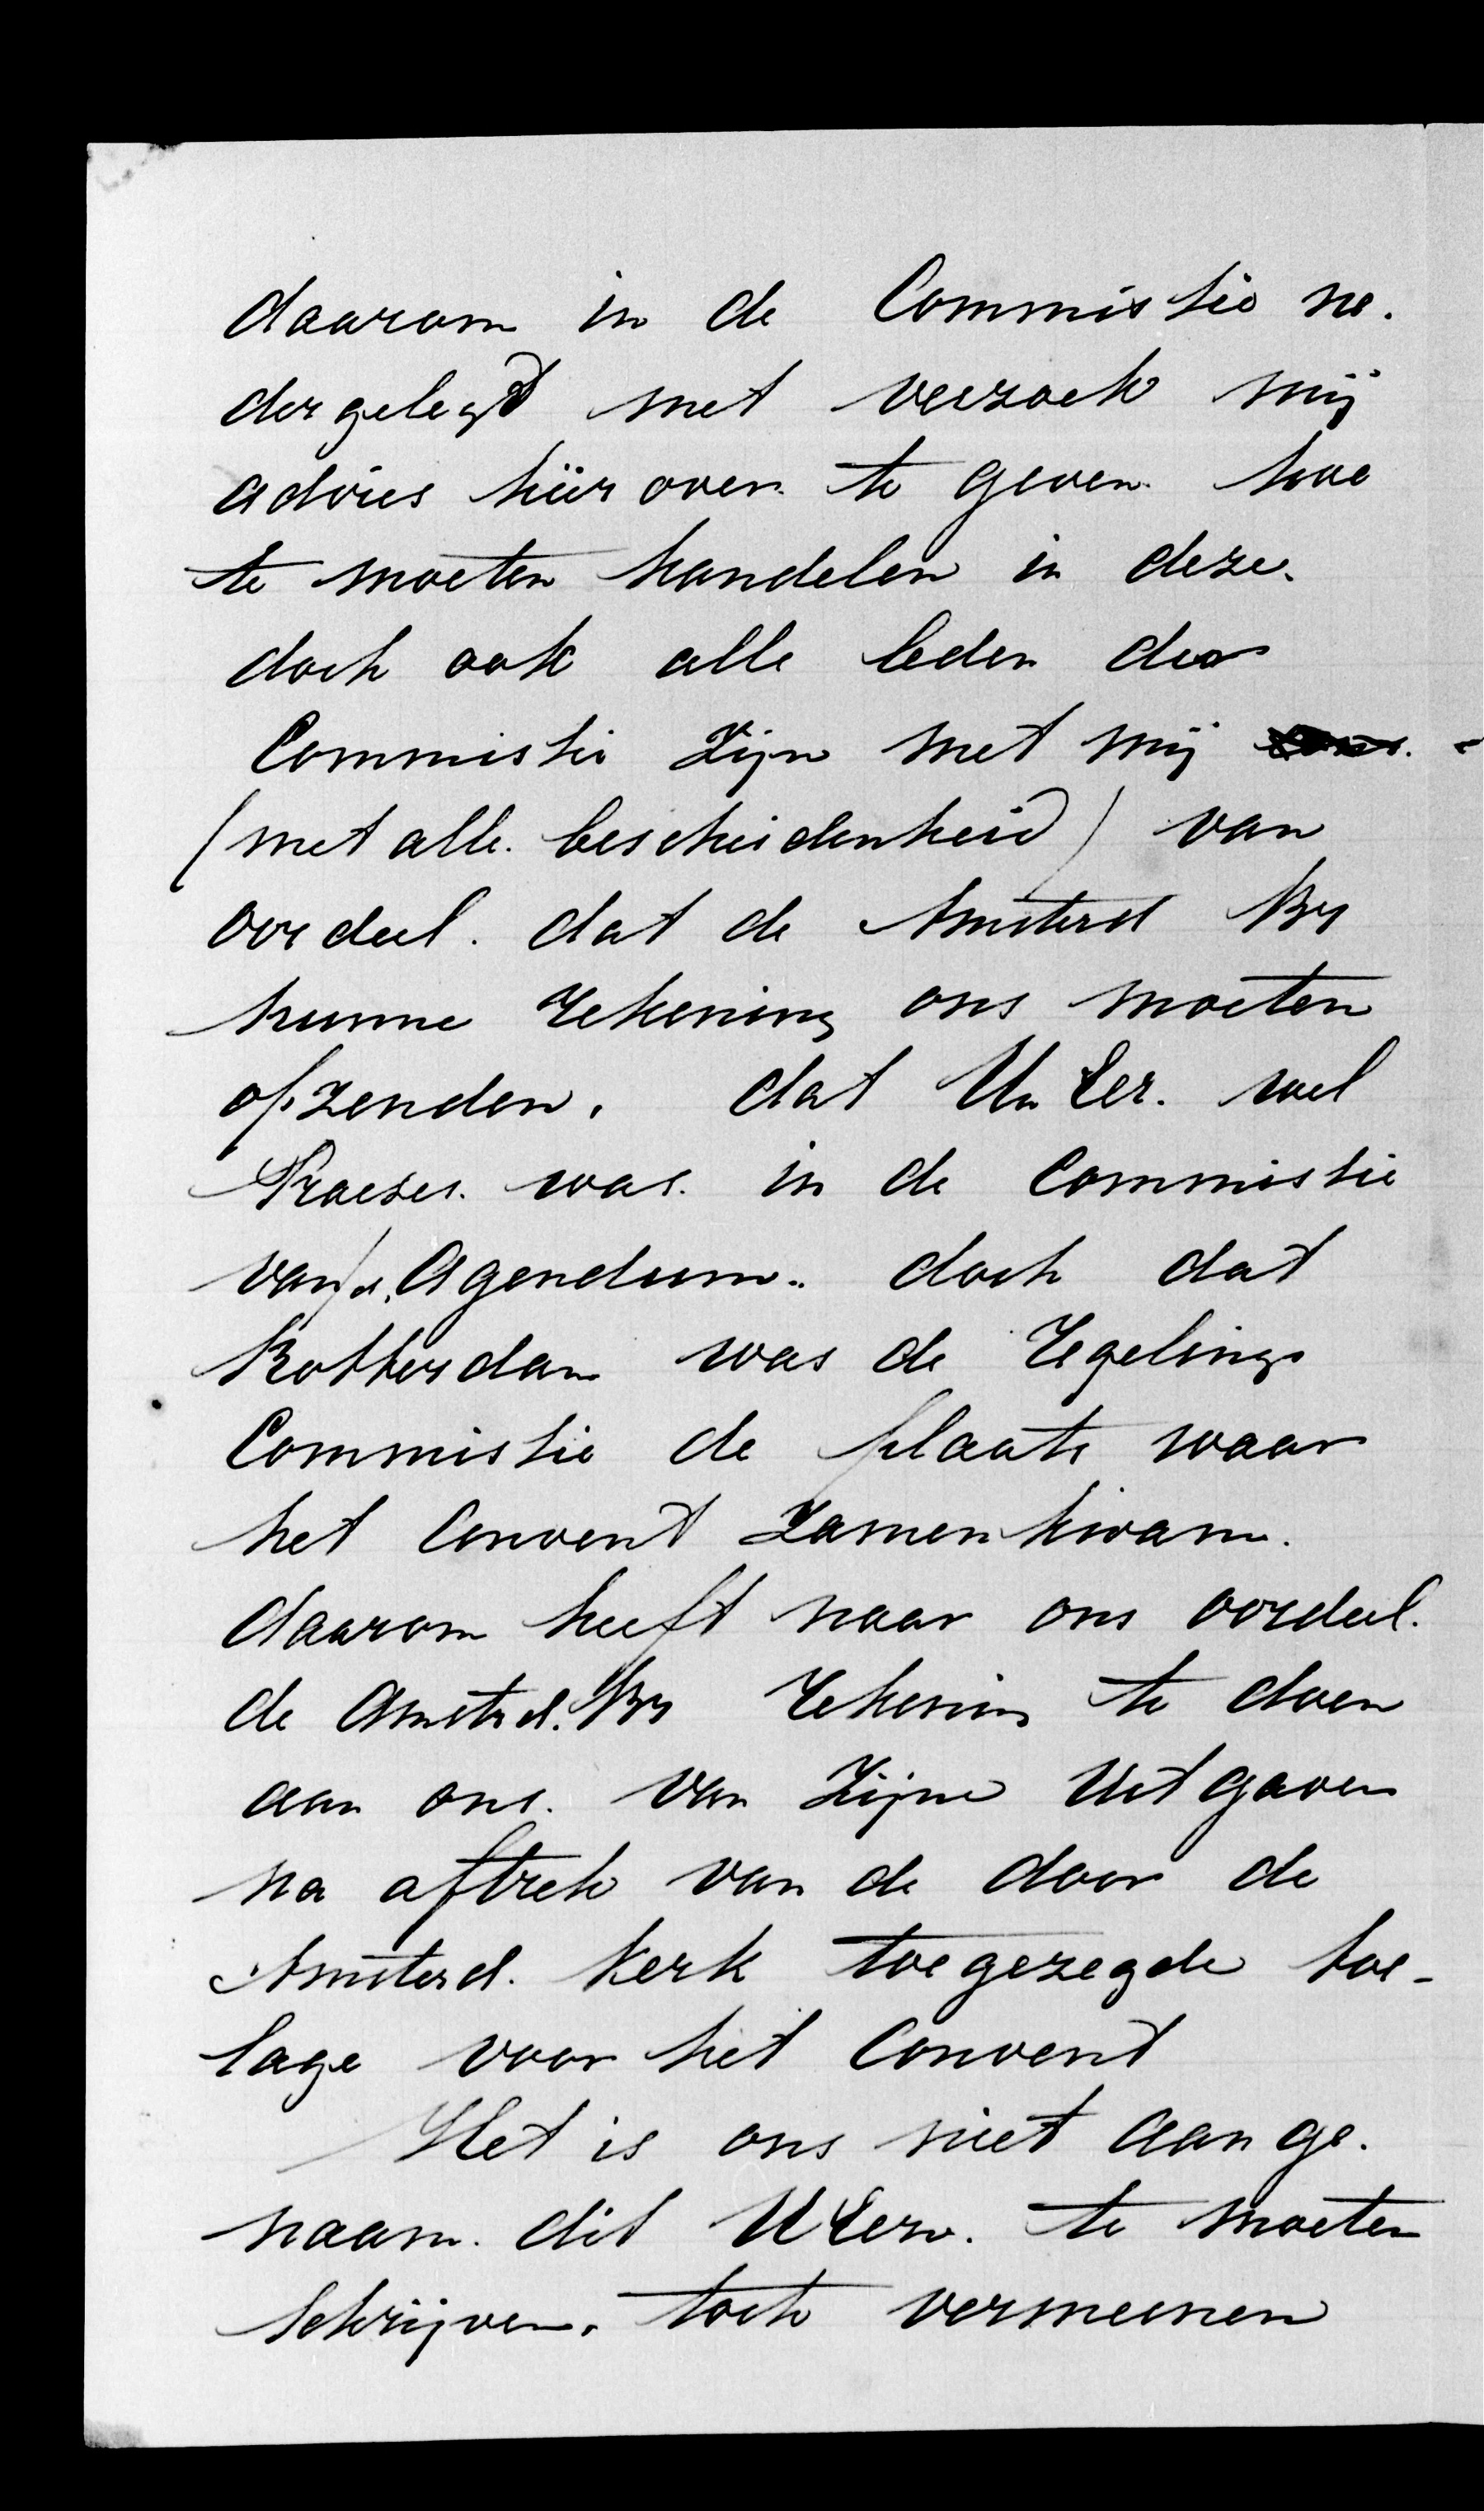 daarom in de Commissie ne.
dergelegd met verzoek mij
advies hiir over te geven hoe
te moeten handelen in deze.
doch ook alle leden der
Commissie Zijn met mij
(met alle bescheidenheid) van
oordeel. dat de Amsterd Brs
hunne rekening ons moeten
opzenden. dat Uw Eer. wel
Praeses was in de Commissie
van/d. Agendum. doch dat
Rotterdam was de regelings
Commissie de plaats waar
het Convent Zamenkwam.
daarom heeft naar ons oordeel.
de Amsterd. Brs rekening te doen
aan ons. van Zijne Uitgaven
na aftrek van de door de
Amsterd. Kerk toegezegde toe-
lage voor het Convent
Het is ons niet aange.
naam. dit UEerw. te moeten
schrijven. toch vermeenen